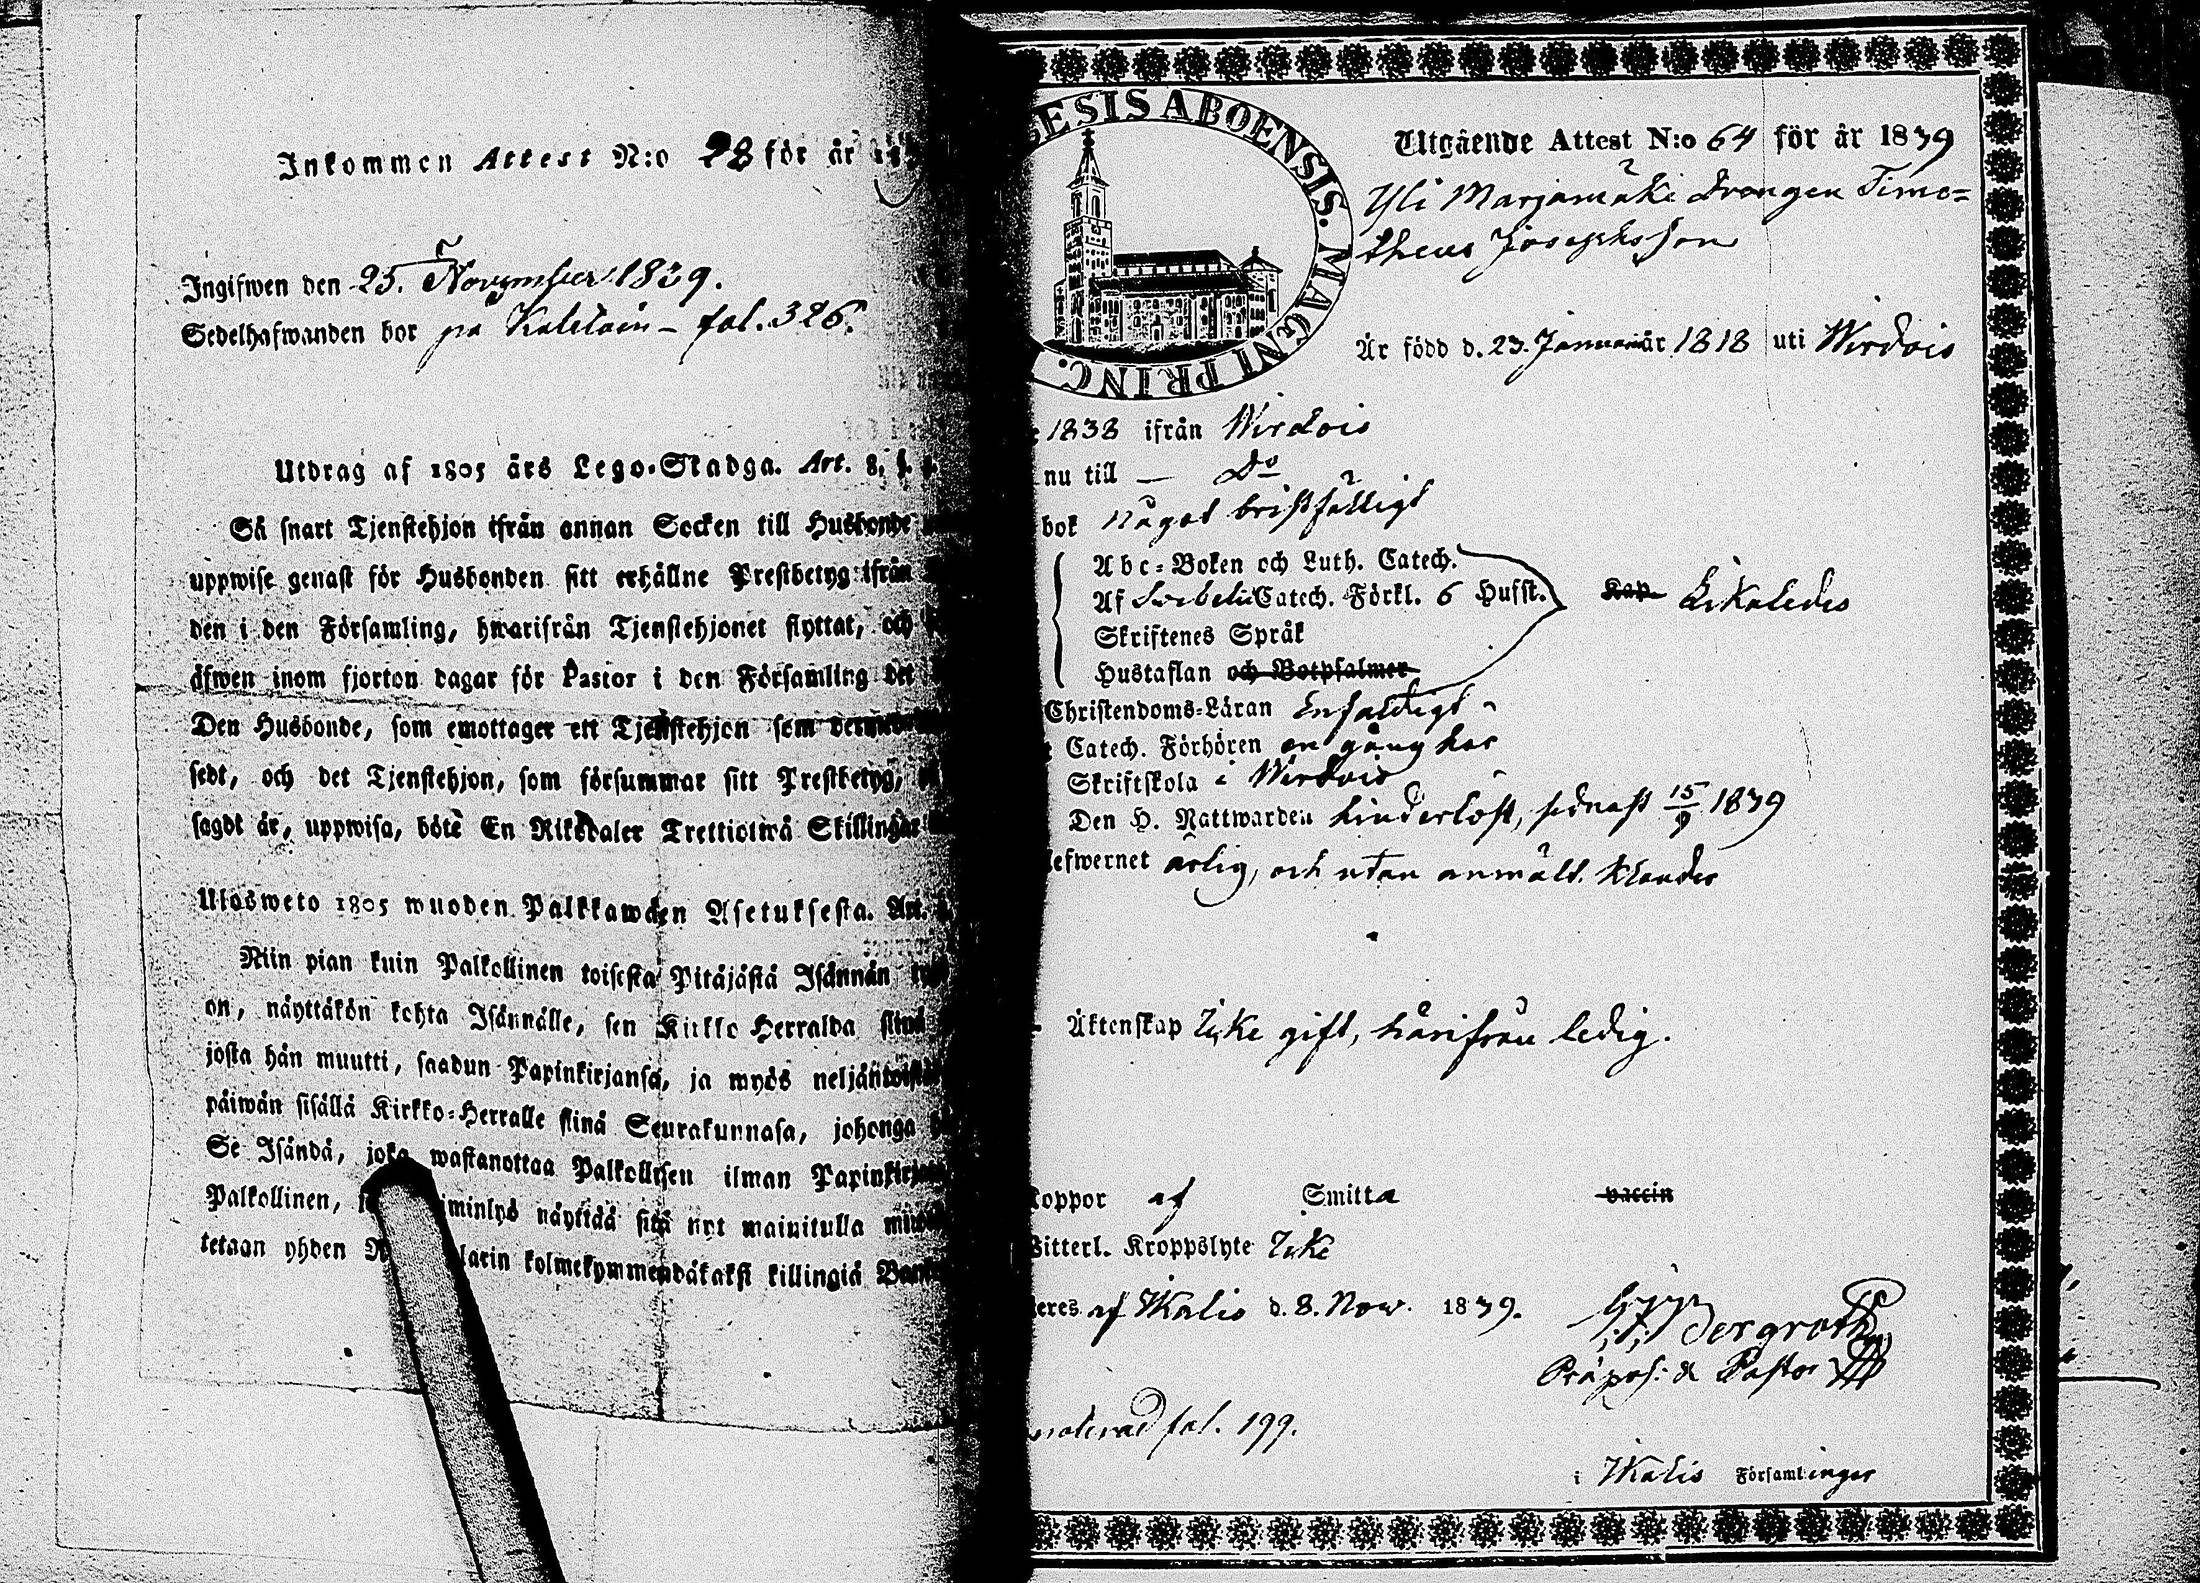 Inkommen Attest N:o 28 för år
Ingifwen den 25. November 1839.
Sedelhafwanden bor på Kaleton – fol. 326.
Utdrag af 1805 års Lego-Stadga. Art. 8. §.
Så snart Tjenstehjon ifrån annan Socken till Husbonde
uppwise genast för Husbonden sitt erhållne Prestbetyg ifrån
den i den Församling, hwarifrån Tjenstehjonet flyttat, och
äfwen inom fjorton dagar för Pastor i den Församling det
Den Husbonde, som emottager ett Tjenstehjon som
sedt, och det Tjenstehjon, som försummar sitt Prestbetyg,
sagdt är, uppwisa, böte En Riksdaler Trettiotwå Skillingar
Ulosweto 1805 wuoden Palkkawäen Asetuksesta. Art.
Niin pian kuin Palkollinen toisesta Pitäjästä Isännän
on, näyttäkön kohta Isännälle, sen Kirkko Herralda siinä
josta hän muutti, saadun Papinkirjansa, ja myös neljäntoista
päiwän sisällä Kirkko-Herralle siinä Seurakunnasa, johonga
Se Isändä, joka wastanottaa Palkollisen ilman
Palkollinen, minlyö näyttää sitä nyt mainitulla
tetaan yhden larin kolmekymmendäkaksi killingiä
ESIS ABOENSIS. MAGNI PRINC.
Utgående Attest N:o 64 för år 1839
Yli Marjamäki Drängen Timo=
theus Josephsson
Är född d. 23. Januariär 1818 uti Wirdois
1838 ifrån Wirdois
nu till — Do
bok något bristfälligt
Abc-Boken och Luth. Catech.
Af Svebelii Catech. Förkl. 6 Hufst. Kap. Likaledes
Skriftenes Språk
Hustaflan och Botpsalmer
Christendoms-Läran Enfaldigt
Catech. Förhören en gång här
Skriftskola i Wirdois
Den H. Nattwarden hinderlöst, sednast 15/9 1839
lefwernet ärlig, och utan anmält klander
Äktenskap Icke gift, härifrån ledig.
koppor af Smitta vaccin
Witterl. Kroppslyte Icke
af Ikalis d. 8. Now. 1839.
Præpos: & Pastor
noterad fol. 199.
i Ikalis Församlingar